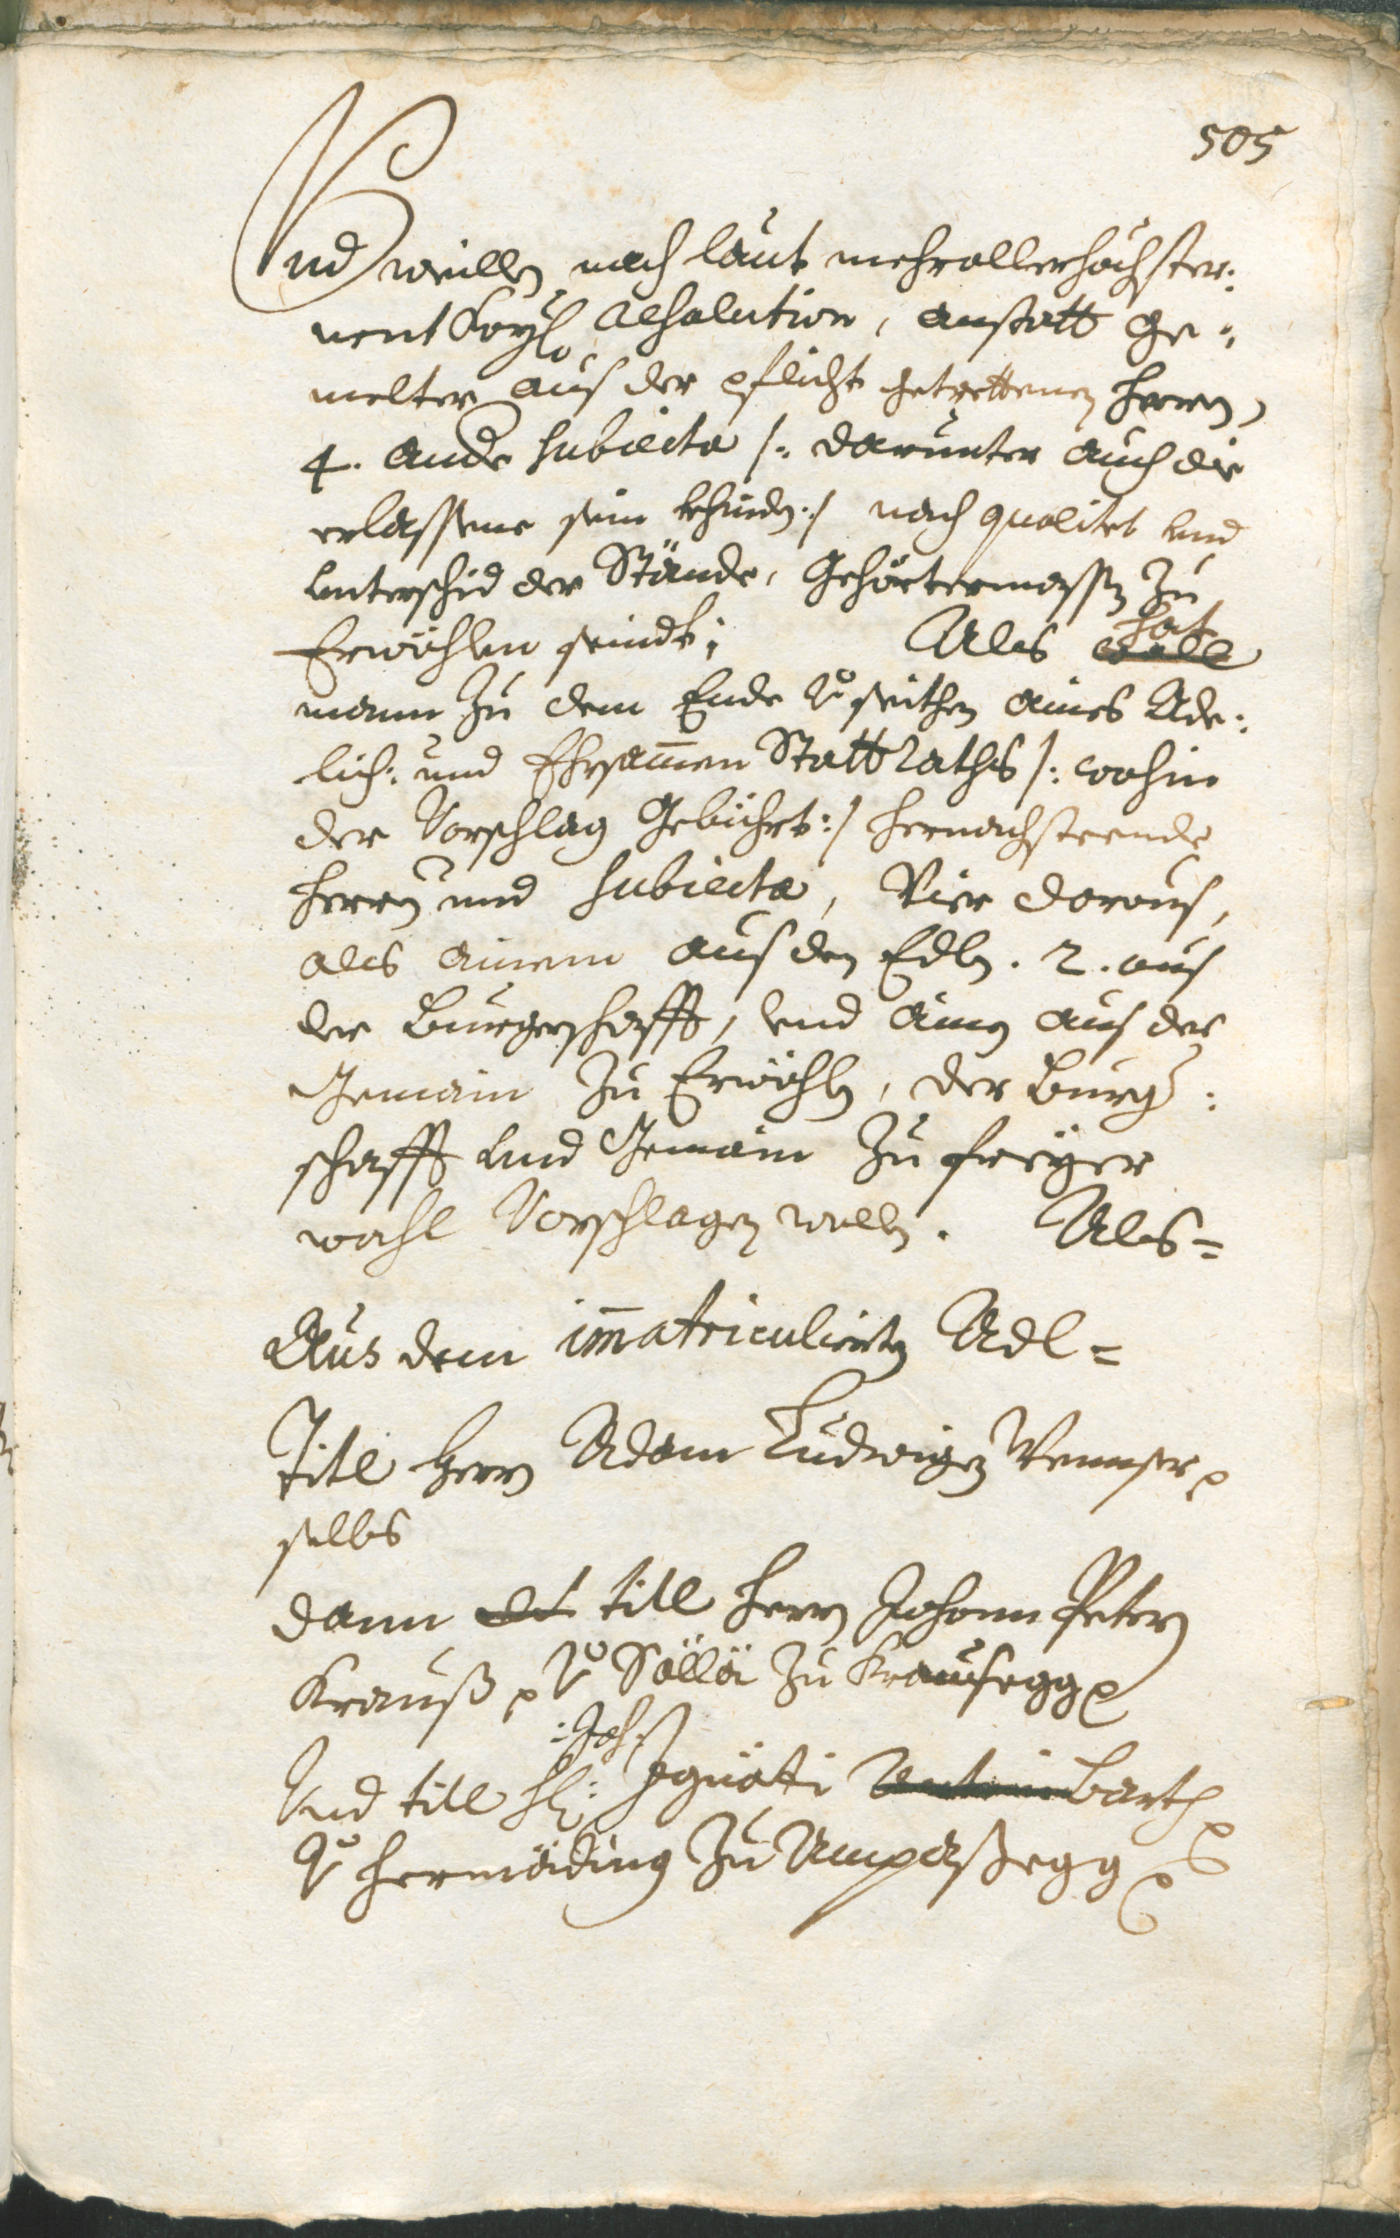 505
Und weillen nach laut mehrallerhöchster:
nent Kayl: Resolution, anstatt ge:
melter aus der pflicht getrettenen Herren,
4. ande Subiecta /: darunter auch die
erlassene sein khinden :/ nach qualitet und
unterschid der Stände, Gehörtermassen Zu
Erwöhlen seindt; Als hat
mann Zu dem Ende von seithen aines Ade:
lich: und Ehrsammen Statt Raths /: wohin
der Vorschlag Gebührt :/ hernachsteende
Herren und Subiecta, Vier daraus,
als ainem aus den Edlen. 2. aus
der Burgerschafft, und ainen aus der
Gemain Zu Erwöhlen, der Burger:
schafft und Gemain Zu freÿer
wahl Vorschlagen wellen. Als=
Aus dem immatriculierten Adl=
Titl Herrn Adam Ludwigen Wenser
selbs
dann titl Herrn Johann Peter
Krauß von Sälla Zu Krausegg
Und titl H: Joh: Ignäti Barth
von Hermäding Zu Ampaßegg